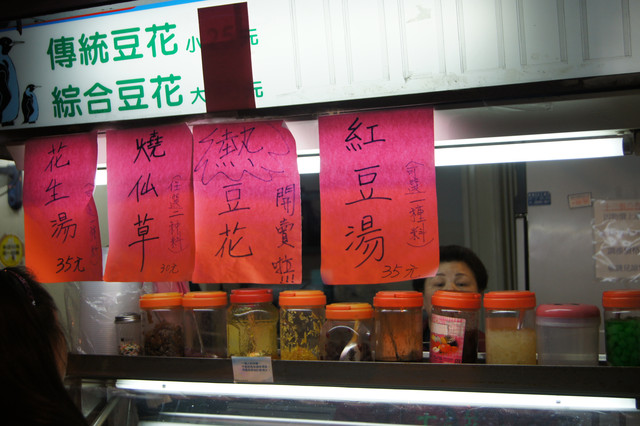 傳統豆花 小 元
綜合豆花 大
花生湯
35元
燒仙草
(任選二種料)
熱豆花
開賣啦!!!
紅豆湯
(可選一種料)
35元